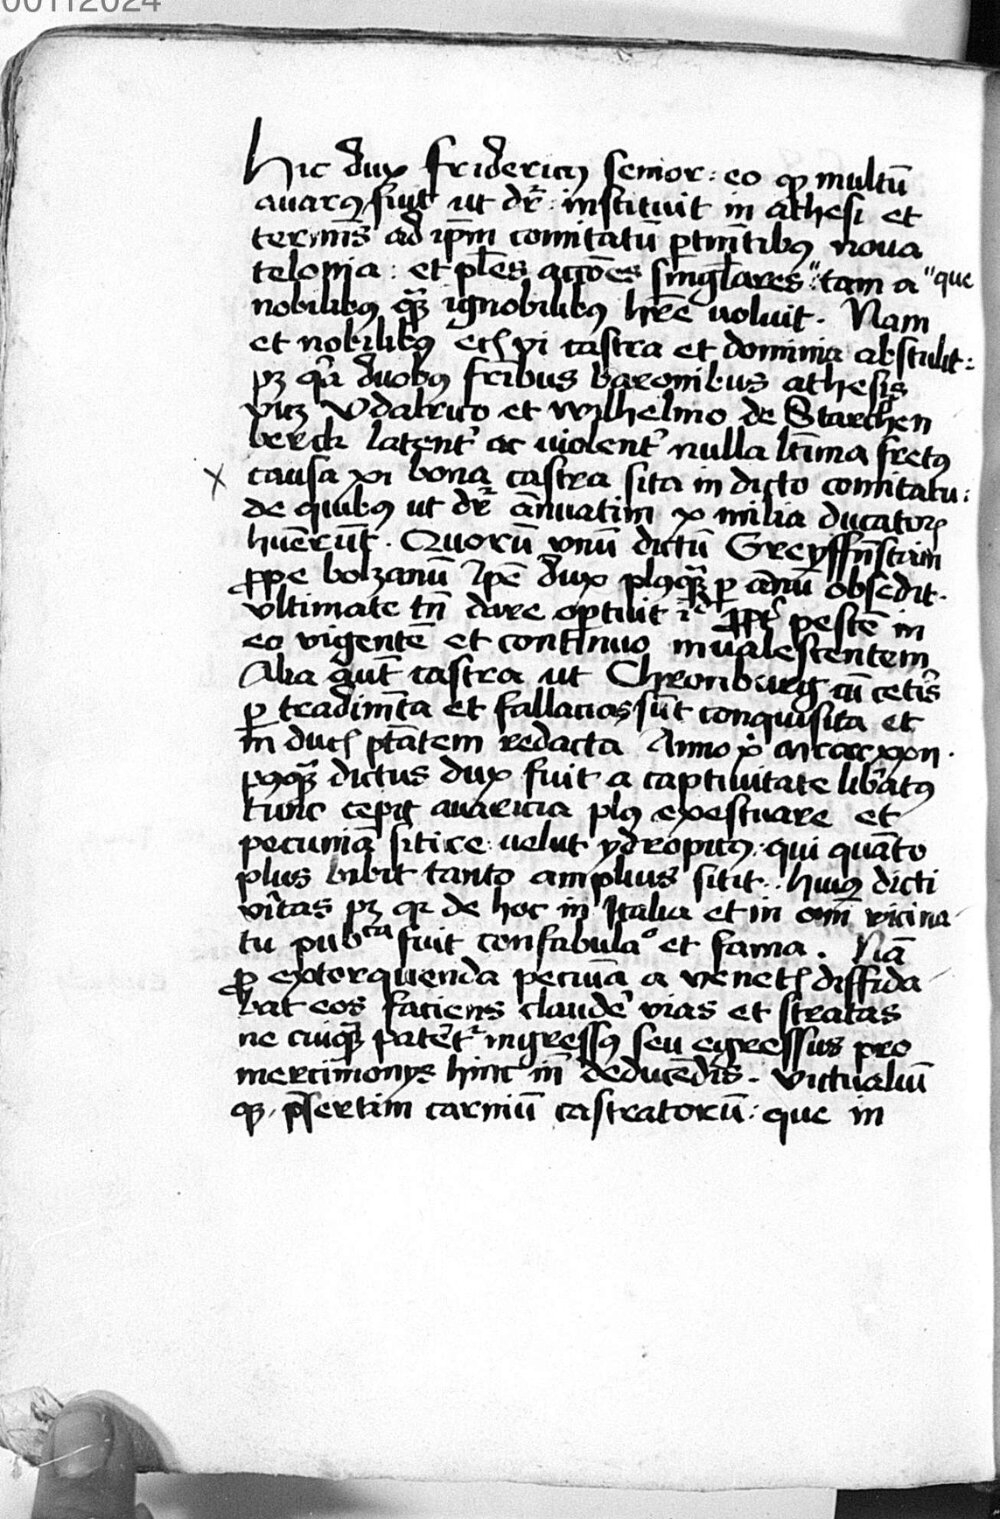 00112024
Hic dux fridericus senior: eo qp multū
auarus fuit ut dr̄: instituit in athesi et
terminis ad ip̄m comitatū ꝑtinētibus noua
telonia: et pl̄es accōes singl̄ares: tam a "que
nobilibus qᷓ ignobilibus hr̄e uoluit. Nam
et nobilibus ecꝭ vi castra et dominia abstulit:
pꝫ qr̄ duobus fr̄ibus baronibus athesis
vicꝫ Vdalrico et wilhelmo de Starchen
berck latent᷑ ac uiolent᷑ nulla l̄tima fretus
causa xi bona castra sita in dicto comitatu:
de quibus ut dr̄ ānuatim x milia ducatoꝝ
huēr̄ūt. Quorū vnū dictū Greyffn̄stain
ꝓpe bolzanū Ip̄e dux plusqᷓ ꝑ annū obsedit.
vltimate tn̄ dare optuit ꝓpt᷑ pestē in
eo vigentē et continuo inualescentem
Alia aūt castra ut Chronburg cū cet̄is
ꝑ tradim̄ta et fallacias sūt conquisita et
in ducꝭ ptātem redacta Anno xi mccccxxii.
pꝰqᷓ dictus dux fuit a captiuitate lib̄atus
tunc cepit auaricia plus exestuare et
pecuniā sitire: uelut ydropicus: qui quāto
plus bibit tanto amplius sitit. Huius dicti
vītas pꝫ qr de hoc in Italia et in om̄i vicina
tu pubᶜᵃ fuit confabulaᵒ et fama. Nā
ꝓ extorquenda pecuīa a venetꝭ diffida
bat eos faciens claudē vias et stratas
ne cuiqᷓ patēt᷑ ingressus seu egressus pro
mercimonys hinc in̄ deducēdis. Victualiū
qꝫ p̄sertim carniū castratorū: que in